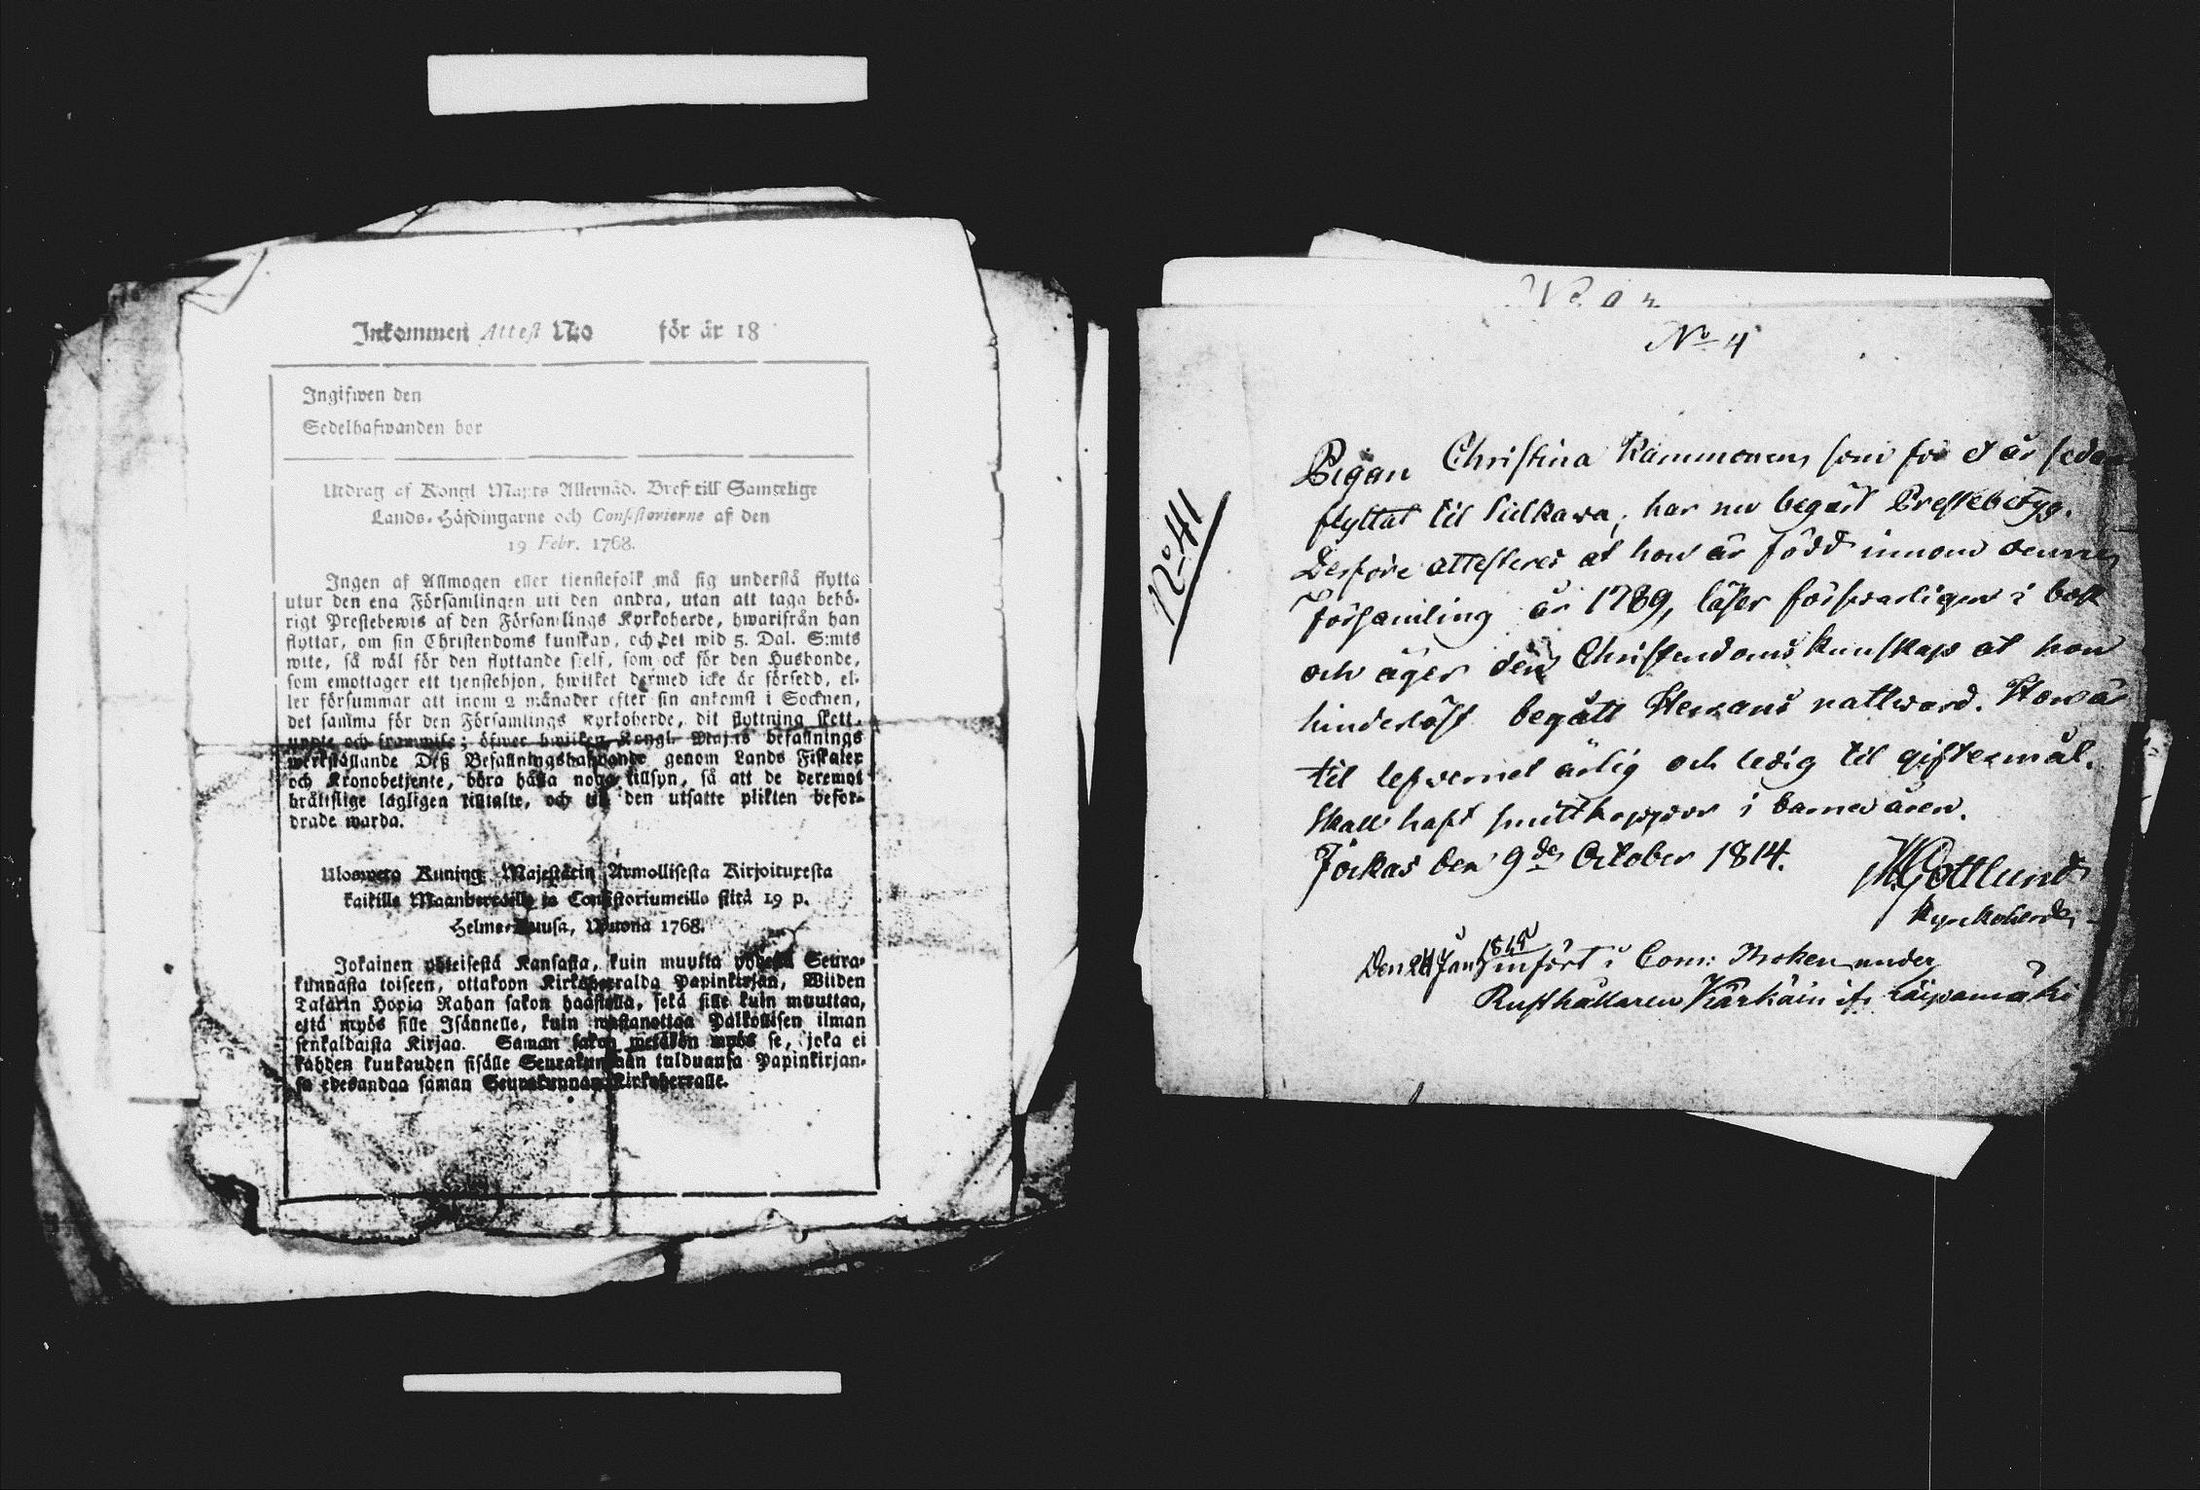 Inkommen Attest N:o för är 18
Ingifwen den
Sedelhafwanden bor
Utdrag af Kongl Maj:ts Allernåd. Bref till Samtelige
Lands-Höfdingarne och Consistorierne af den
19 Febr. 1768.
Ingen af Allmogen eller tjenstefolk må sig understå flytta
utur den ena Församlingen uti den andra, utan att taga behö-
rigt Prestebewis af den Församlings Kyrkoherde, hwarifrån han
flyttar, om sin Christendoms kunskap, och det wid 5. Dal. S:mts
wite, så wäl för den flyttande sjelf, som ock för den Husbonde,
som emottager ett tjenstehjon, hwilket dermed icke är försedd, el-
ler försummar att inom 2 månader efter sin ankomst i Socknen,
det samma för den Församlings Kyrkoherde, dit flyttning skett,
uppte och framwisa; öfwer hwilken Kongl. Maj:ts befallnings
werkställande Deß Befallningshafwande genom Lands Fiskaler
och Kronobetjente, böra hålla noga tillsyn, så att de deremot
brättslige lagligen tilltalte, och till den utsatte plikten befor-
drade warda.
Ulosweto Kuning: Majestätin Armollisesta Kirjoituxesta
kaikille Maanherroille ja Consistoriumeille siitä 19 p.
Helme-Kuusa, Wuonna 1768.
Jokainen yhteisestä Kansasta, kuin muutta yhdestä Seura-
kunnasta toiseen, ottakoon Kirkoherralda Papinkirjan, Wiiden
Talarin Hopia Rahan sakon haastolla, sekä sille kuin muuttaa,
että myös sille Isännelle, kuin wastanottaa Palkollisen ilman
senkaldaista Kirjaa. Saman sakon wetäkön myös se, joka ei
kahden kuukauden sisälle Seurakunnan tulduansa Papinkirjan-
sa edesandaa saman Seurakunnan Kirkoherralle.
No 4
No 41
Pigan Christina Kammonen, som för et år sedan
flyttat til Sulkava, har nu begärt Prestebetyg.
Derföre attesteres at hon är född innom denna
Församling år 1789, läser försvarligen i bok
och äger den Christendoms kunskap at hon
hinderlöst begått Herrans nattward. Hon är
til lefvernet ärlig och ledig til giftermål.
Skall haft smittkoppor i barnaåren.
Jockas den 9de October 1814.
Gottlund
Kyrckoherde
Den 24 Jan 1815 infört i Com: Boken under
Rusthållaren Kärkäin